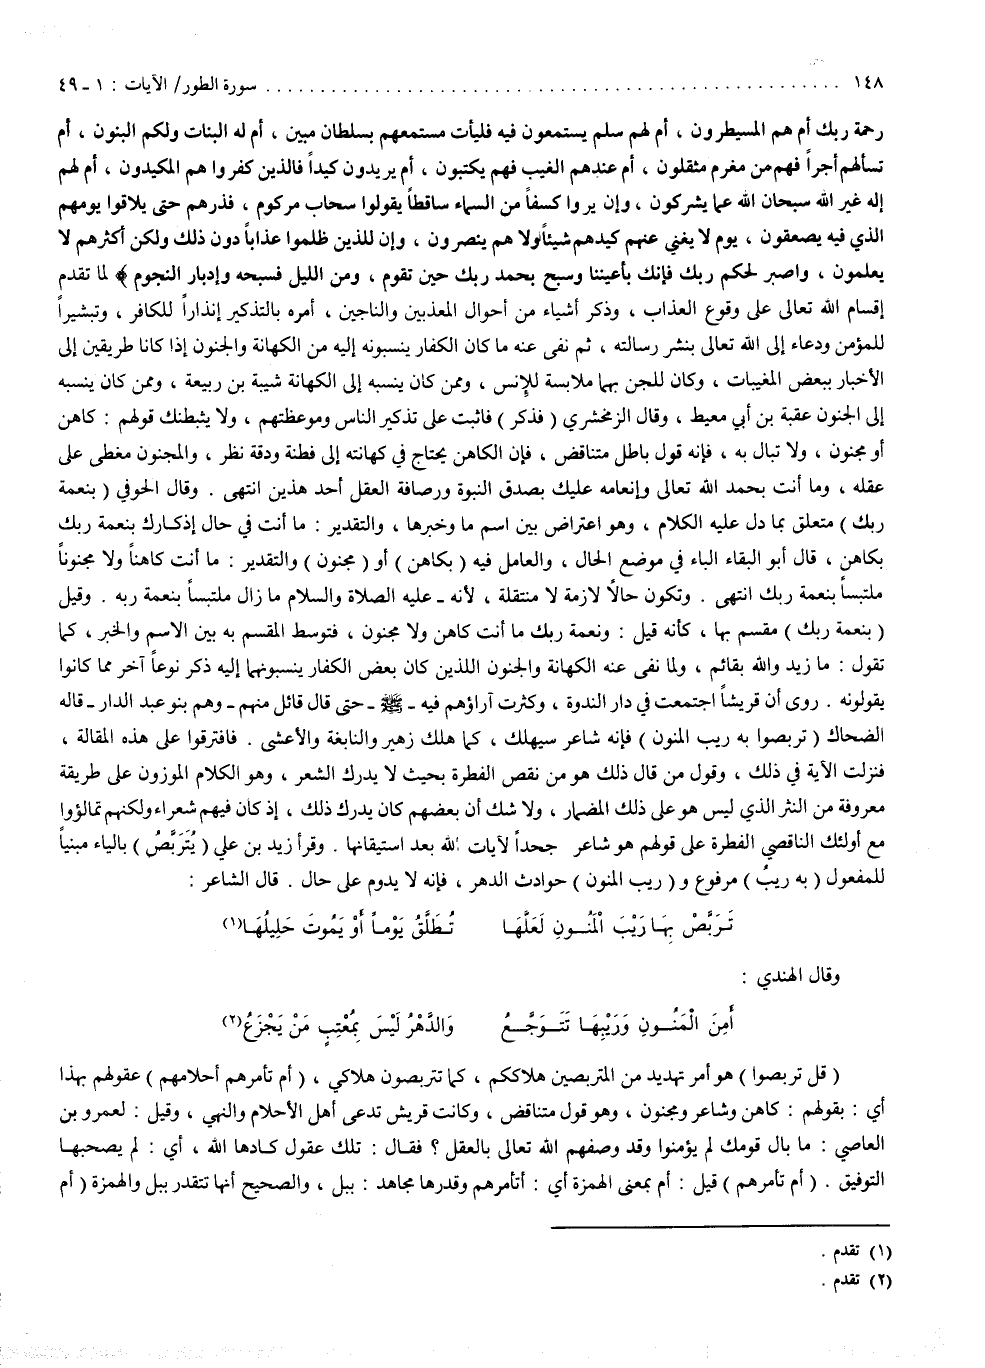 ١٤٨ . . . . . . . . . . . . . . . . . . . . . . . . . . . . . . . . . . . . . . . . . . . . . . . . . . . . . سورة الطور/ الآيات : ١ ـ ٤٩
رحمة ربك أم هم المسيطرون ، أم لهم سلم يستمعون فيه فليأت مستمعهم بسلطان مبين ، أم له البنات ولكم البنون ، أم
تسألهم أجراً فهم من مغرم مثقلون ، أم عندهم الغيب فهم يكتبون ، أم يريدون كيداً فالذين كفروا هم المكيدون ، أم لهم
إله غير الله سبحان الله عما يشركون ، وإن يروا كسفاً من السماء ساقطاً يقولوا سحاب مركوم ، فذرهم حتى يلاقوا يومهم
الذي فيه يصعقون ، يوم لا يغني عنهم كيدهم شيئاً ولا هم ينصرون ، وإن للذين ظلموا عذاباً دون ذلك ولكن أكثرهم لا
يعلمون ، واصبر لحكم ربك فإنك بأعيننا وسبح بحمد ربك حين تقوم ، ومن الليل فسبحه وإدبار النجوم ﴾ لما تقدم
إقسام الله تعالى على وقوع العذاب ، وذكر أشياء من أحوال المعذبين والناجين ، أمره بالتذكير إنذاراً للكافر ، وتبشيراً
للمؤمن ودعاء إلى الله تعالى بنشر رسالته ، ثم نفى عنه ما كان الكفار ينسبونه إليه من الكهانة والجنون إذا كانا طريقين إلى
الأخبار ببعض المغيبات ، وكان للجن بهما ملابسة للإنس ، وممن كان ينسبه إلى الكهانة شيبة بن ربيعة ، وممن كان ينسبه
إلى الجنون عقبة بن أبي معيط ، وقال الزمخشري ( فذكر ) فاثبت على تذكير الناس وموعظتهم ، ولا يثبطنك قولهم : كاهن
أو مجنون ، ولا تبال به ، فإنه قول باطل متناقض ، فإن الكاهن يحتاج في كهانته إلى فطنة ودقة نظر ، والمجنون مغطى على
عقله ، وما أنت بحمد الله تعالى وإنعامه عليك بصدق النبوة ورصافة العقل أحد هذين انتهى . وقال الحوفي ( بنعمة
ربك ) متعلق بما دل عليه الكلام ، وهو اعتراض بين اسم ما وخبرها ، والتقدير : ما أنت في حال إذكارك بنعمة ربك
بكاهن ، قال أبو البقاء الباء في موضع الحال ، والعامل فيه ( بكاهن ) أو ( مجنون ) والتقدير : ما أنت كاهناً ولا مجنوناً
ملتبساً بنعمة ربك انتهى . وتكون حالاً لازمة لا منتقلة ، لأنه ـ عليه الصلاة والسلام ما زال ملتبساً بنعمة ربه . وقيل
( بنعمة ربك ) مقسم بها ، كأنه قيل : ونعمة ربك ما أنت كاهن ولا مجنون ، فتوسط المقسم به بين الاسم والخبر ، كما
تقول : ما زيد والله بقائم ، ولما نفى عنه الكهانة والجنون اللذين كان بعض الكفار ينسبونهما إليه ذكر نوعاً آخر مما كانوا
يقولونه . روى أن قريشاً اجتمعت في دار الندوة ، وكثرت آراؤهم فيه ـ ﷺ ـ حتى قال قائل منهم ـ وهم بنو عبد الدار ـ قاله
الضحاك ( تربصوا به ريب المنون ) فإنه شاعر سيهلك ، كما هلك زهير والنابغة والأعشى . فافترقوا على هذه المقالة ،
فنزلت الآية في ذلك ، وقول من قال ذلك هو من نقص الفطرة بحيث لا يدرك الشعر ، وهو الكلام الموزون على طريقة
معروفة من النثر الذي ليس هو على ذلك المضمار ، ولا شك أن بعضهم كان يدرك ذلك ، إذ كان فيهم شعراء ولكنهم تمالؤوا
مع أولئك الناقصي الفطرة على قولهم هو شاعر جحداً لآيات الله بعد استيقانها . وقرأ زيد بن علي ( يُتَرَبَّصُ ) بالياء مبنياً
للمفعول ( به ريبُ ) مرفوع و ( ريب المنون ) حوادث الدهر ، فإنه لا يدوم على حال . قال الشاعر :
تَرَبَّصْ بِهَا رَيْبَ الْمَنُونِ لَعَلَّهَا تُطَلَّقُ يَوْماً أَوْ يَمُوتَ حَلِيلُهَا(١)
وقال الهندي :
أَمِنَ الْمَنُونِ وَرَيْبِهَا تَتَوَجَّعُ وَالدَّهْرُ لَيْسَ بِمُعْتِبٍ مَنْ يَجْزَعُ(٢)
( قل تربصوا ) هو أمر تهديد من المتربصين هلاككم ، كما تتربصون هلاكي ، ( أم تأمرهم أحلامهم ) عقولهم بهذا
أي : بقولهم : كاهن وشاعر ومجنون ، وهو قول متناقض ، وكانت قريش تدعى أهل الأحلام والنهي ، وقيل : لعمرو بن
العاصي : ما بال قومك لم يؤمنوا وقد وصفهم الله تعالى بالعقل ؟ فقال : تلك عقول كادها الله ، أي : لم يصحبها
التوفيق . ( أم تأمرهم ) قيل : أم بمعنى الهمزة أي : أتأمرهم وقدرها مجاهد : ببل ، والصحيح أنها تتقدر ببل والهمزة ( أم
(١) تقدم .
(٢) تقدم .